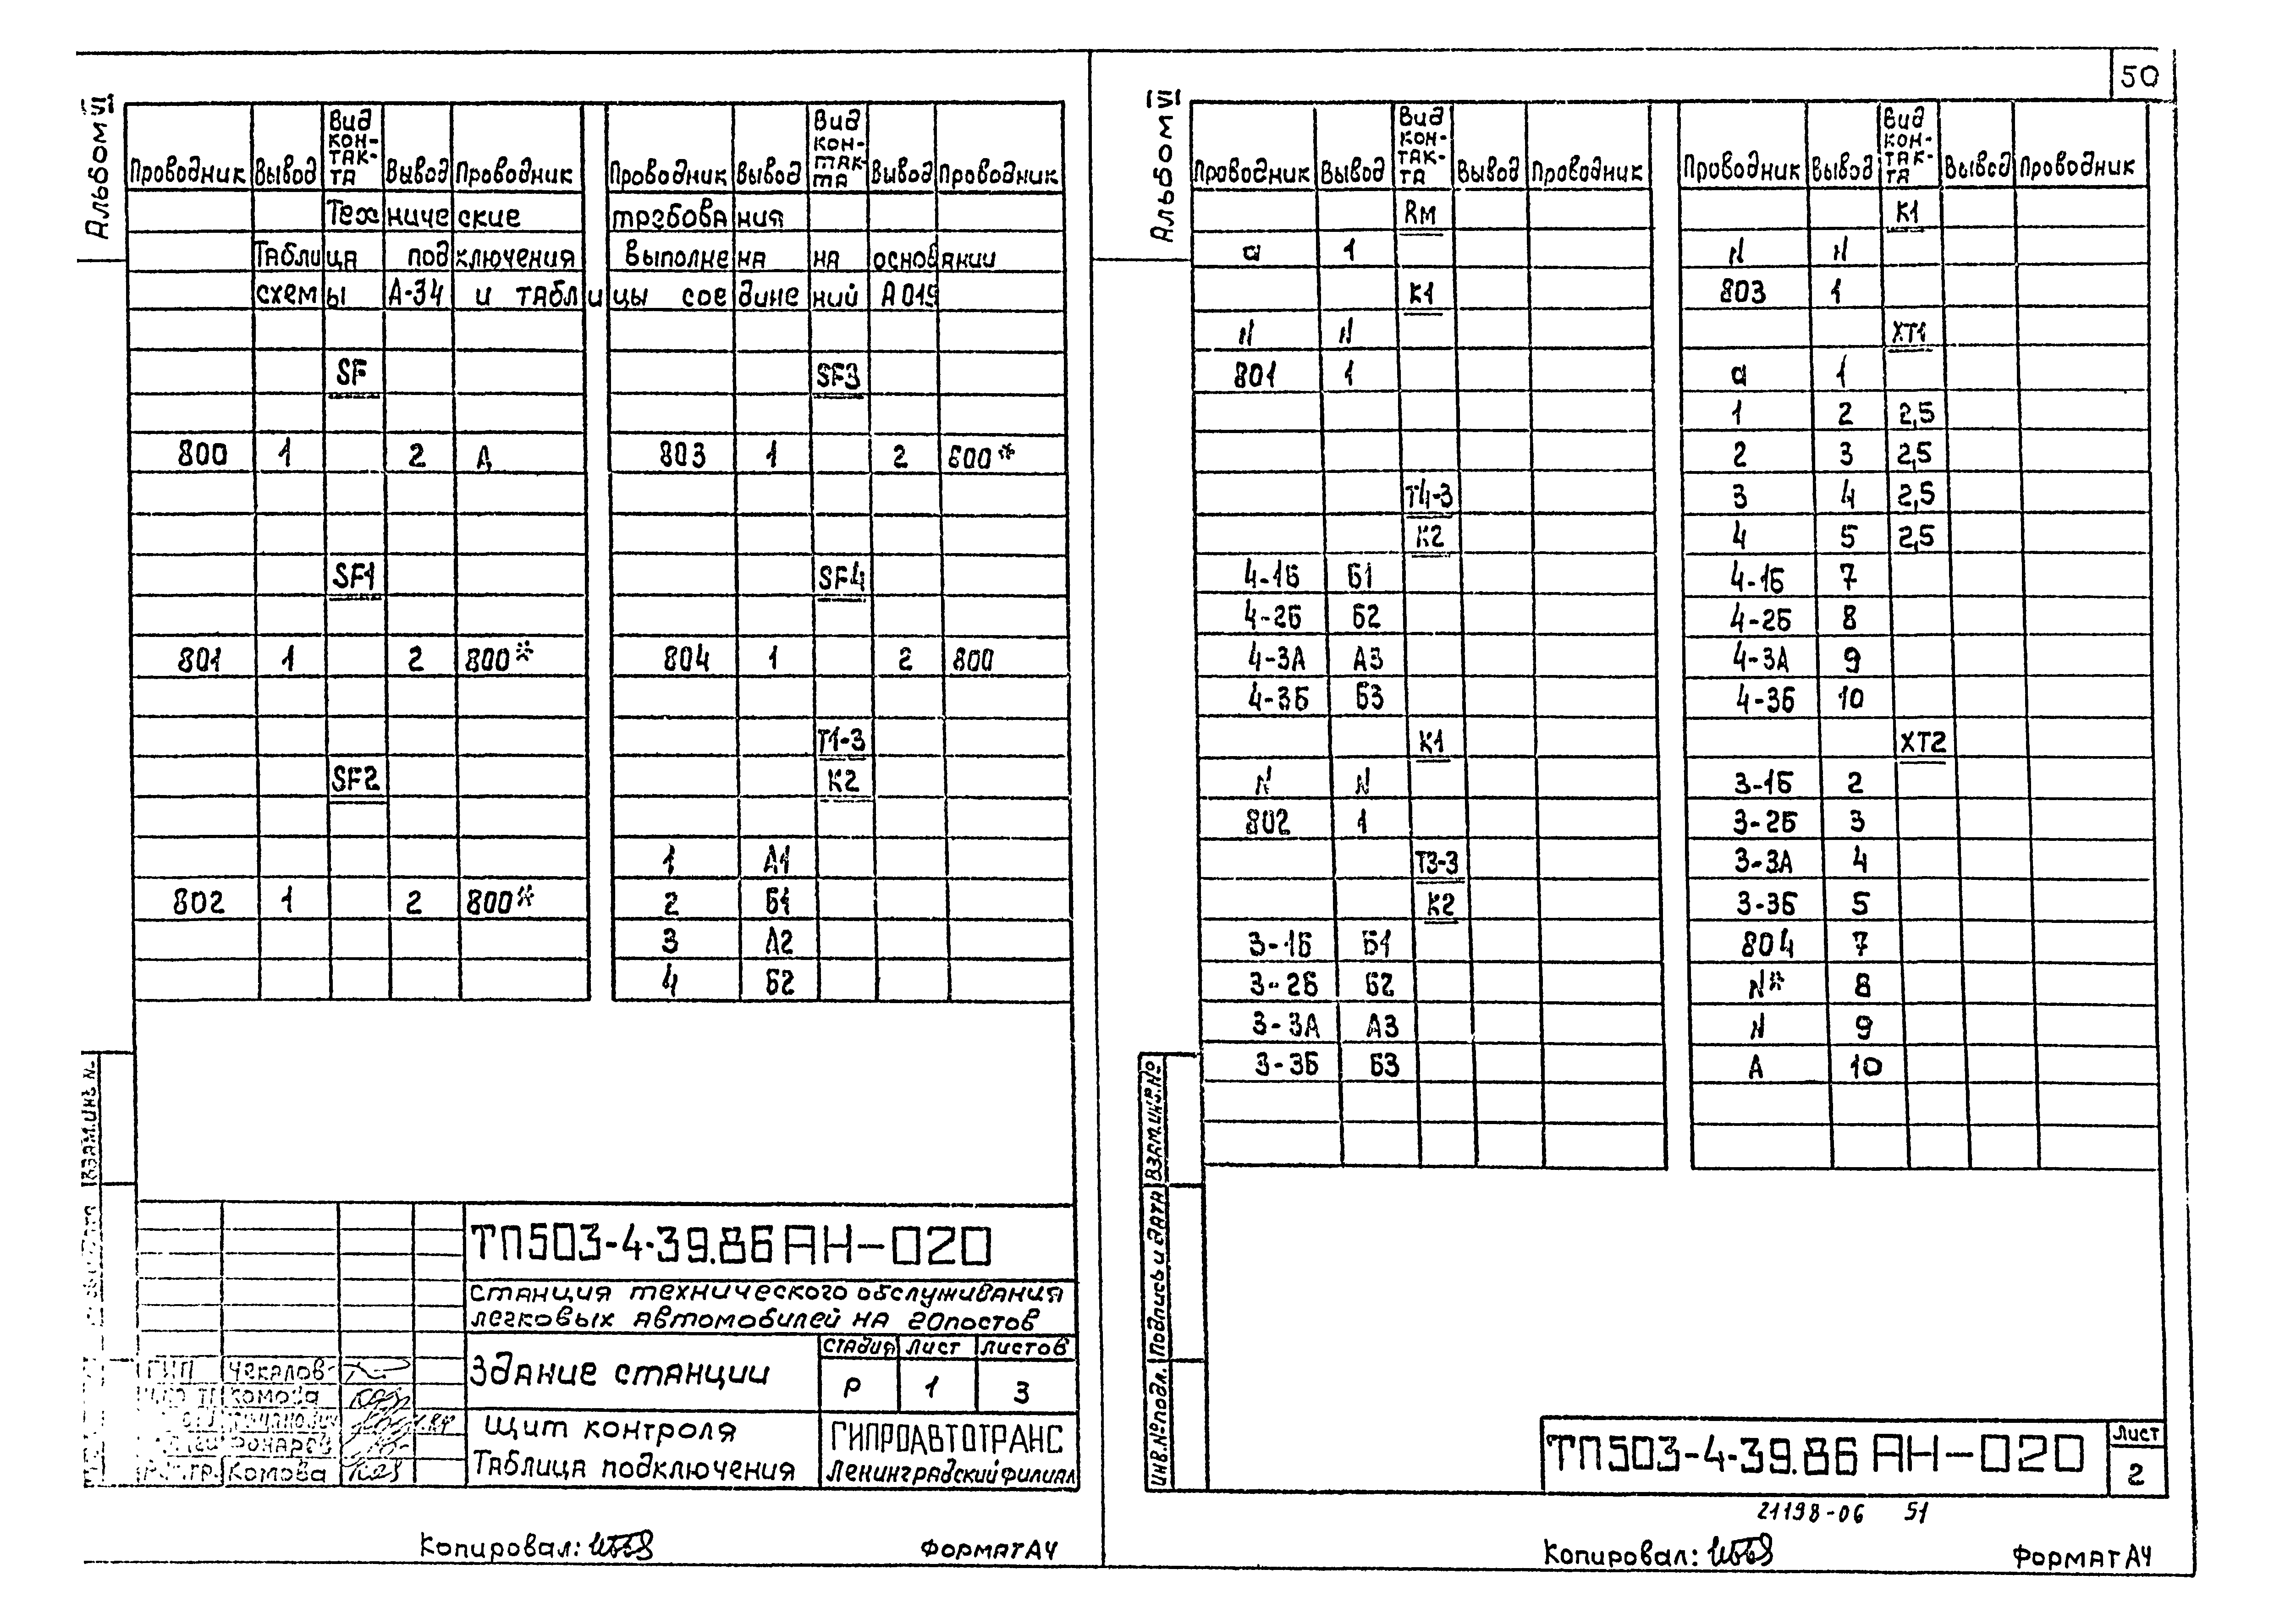 50
Альбом VI
Проводник Вывод Вид кон- так- та Вывод Проводник Проводник Вывод Вид кон- так- та Вывод Проводник
Технические требования
Таблица подключения выполнена на основании
схемы А-34 и таблицы соединений А019
SF SF3
800 1 2 А 803 1 2 600*
SF1 SF4
801 1 2 800* 804 1 2 800
Т1-3
SF2 К2
1 А1
802 1 2 800* 2 Б1
3 А2
4 Б2
ВЗАМ.ИНВ.N.
ТП503-4-39.86 АН-020
Станция технического обслуживания
легковых автомобилей на 20 постов
Здание станции
Стадия Лист Листов
Р 1 3
Щит контроля
Таблица подключения
ГИПРОАВТОТРАНС
Ленинградский филиал
ГИП Чекалов
Комова
Комова
Копировал:
Формат А4
Альбом VI
Проводник Вывод Вид кон- так- та Вывод Проводник Проводник Вывод Вид кон- так- та Вывод Проводник
Rм К1
а 1 N N
К1 803 1
N N ХТ1
801 1 а 1
1 2 2,5
2 3 2,5
Т4-3 3 4 2,5
К2 4 5 2,5
4-1Б Б1 4-1Б 7
4-2Б Б2 4-2Б 8
4-3А А3 4-3А 9
4-3Б Б3 4-3Б 10
К1 ХТ2
N N 3-1Б 2
802 1 3-2Б 3
Т3-3 3-3А 4
К2 3-3Б 5
3-1Б Б1 804 7
3-2Б Б2 N* 8
3-3А А3 N 9
3-3Б Б3 А 10
Инв.№подл. Подпись и дата Взам.инв.№
ТП503-4-39.86 АН-020
Лист
2
21198-06 51
Копировал:
Формат А4